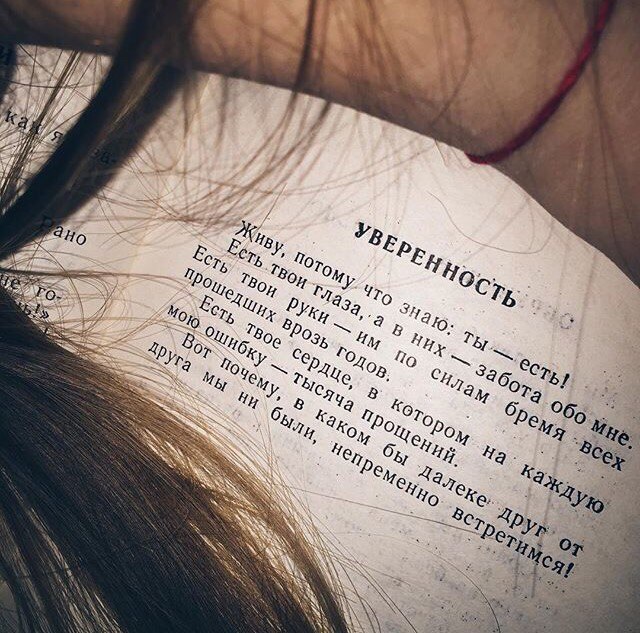 как я
Рано
УВЕРЕННОСТЬ
Живу, потому что знаю: ты — есть!
Есть твои глаза, а в них — забота обо мне.
Есть твои руки — им по силам бремя всех
прошедших врозь годов.
Есть твое сердце, в котором на каждую
мою ошибку — тысяча прощений.
Вот почему, в каком бы далеке друг от
друга мы ни были, непременно встретимся!